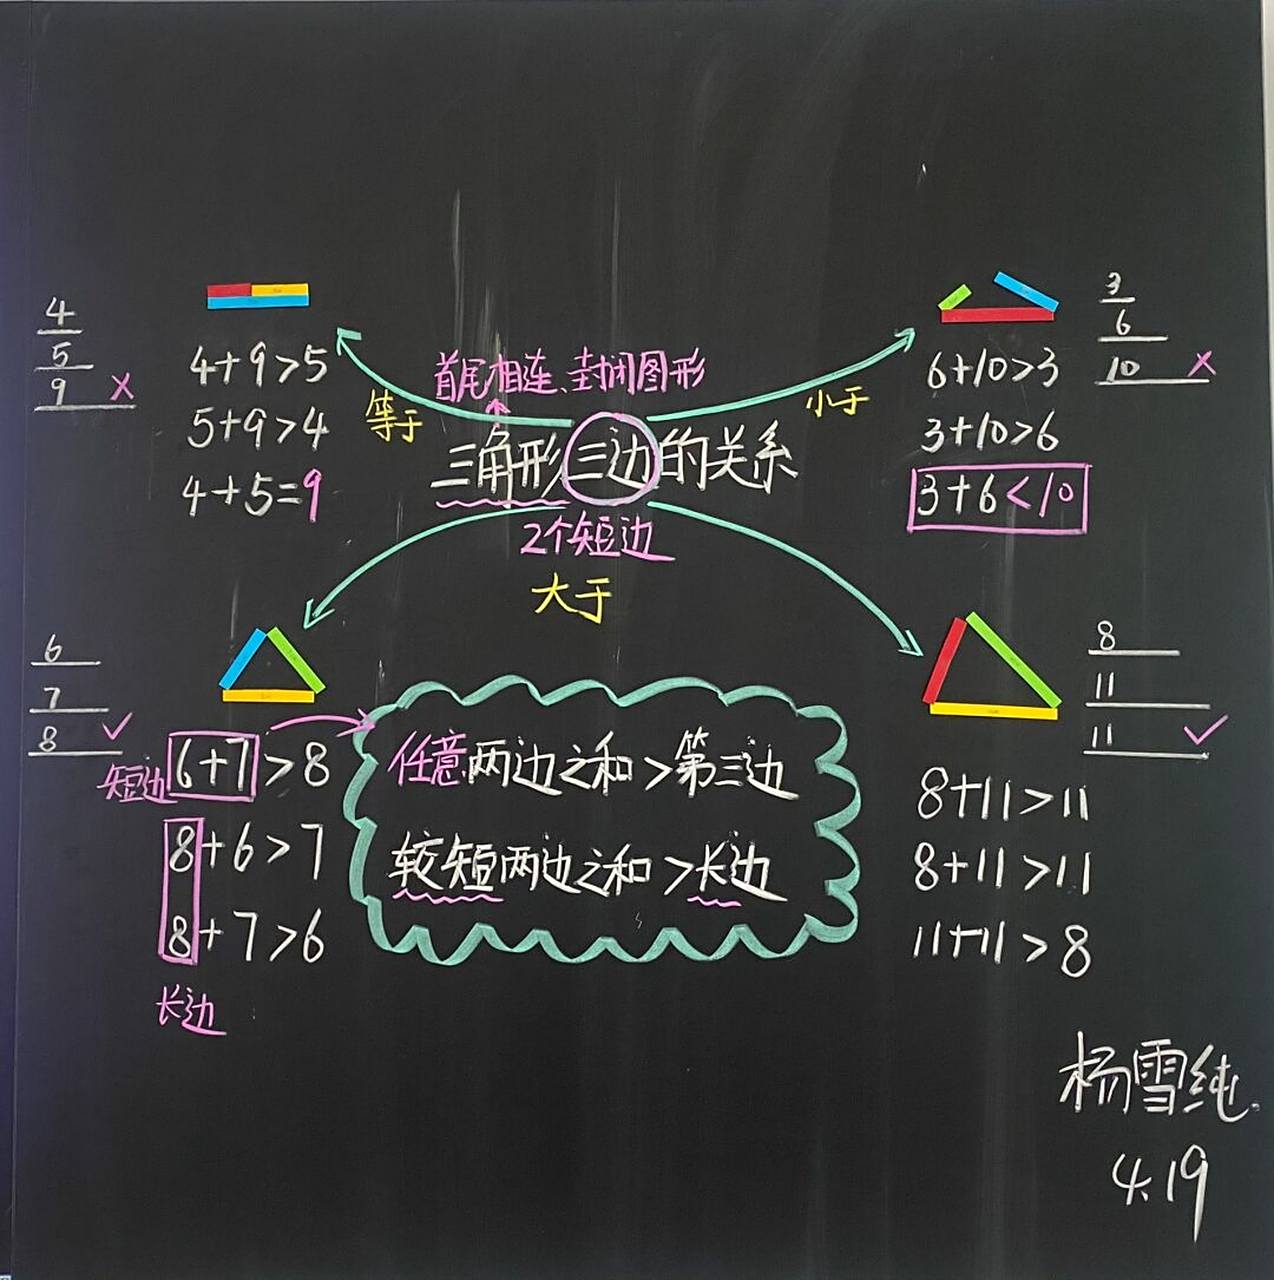 4
5
9 ×
4+9>5
5+9>4
4+5=9
等于
首尾相连、封闭图形
三角形三边的关系
2个短边
大于
小于
3
6
10 ×
6+10>3
3+10>6
3+6<10
6
7
8 ✓
短边 6+7>8
8+6>7
8+7>6
长边
任意两边之和>第三边
较短两边之和>长边
8
11
11 ✓
8+11>11
8+11>11
11+11>8
杨雪纯.
4.19